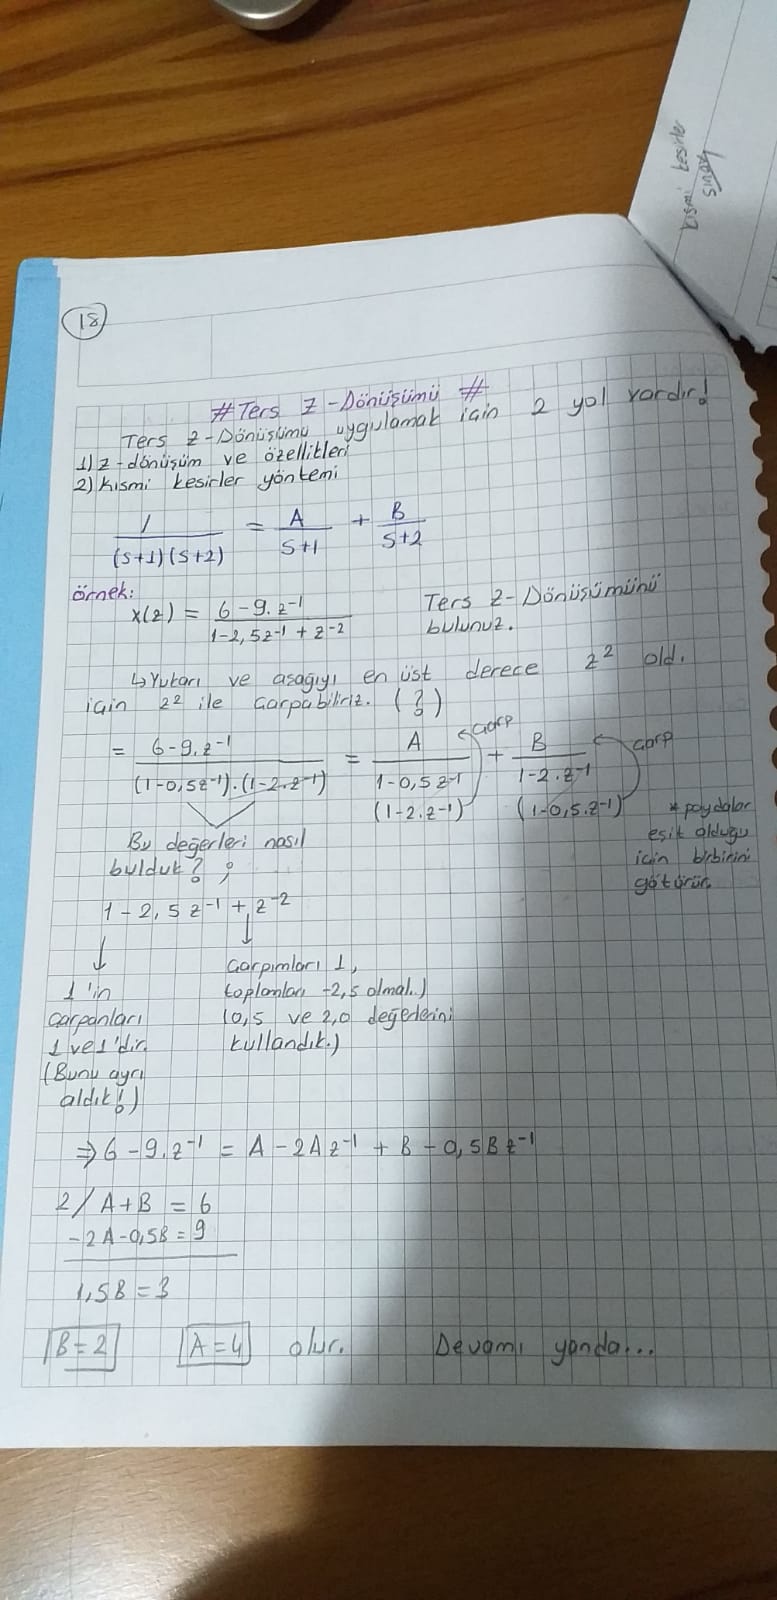 kısmi kesirler
sınav
18
# Ters Z-Dönüşümü #
Ters z-Dönüşümü uygulamak için 2 yol vardır!
1) z-dönüşüm ve özellikleri
2) Kısmi kesirler yöntemi
1/((s+1)(s+2)) = A/(s+1) + B/(s+2)
örnek:
x(z) = (6-9.z⁻¹)/(1-2,5z⁻¹+z⁻²) Ters z-Dönüşümünü
bulunuz.
↳ Yukarı ve aşağıyı en üst derece z² old.
için z² ile çarpabiliriz. (?)
= (6-9.z⁻¹)/((1-0,5z⁻¹).(1-2.z⁻¹)) = A/(1-0,5z⁻¹) + B/(1-2.z⁻¹)
←çarp
çarp
(1-2.z⁻¹) (1-0,5.z⁻¹)
* paydalar
eşit olduğu
için birbirini
götürür.
Bu değerleri nasıl
bulduk? ;
1-2,5z⁻¹+z⁻²
↓ ↓
1'in
çarpanları
1 ve 1'dir.
(Bunu ayrı
aldık!)
çarpımları 1,
toplamları -2,5 olmalı.)
(0,5 ve 2,0 değerlerini
kullandık.)
⇒ 6-9.z⁻¹ = A-2Az⁻¹ + B-0,5Bz⁻¹
2/ A+B = 6
-2A-0,5B = 9
1,5B = 3
B=2 A=4 olur. Devamı yanda...